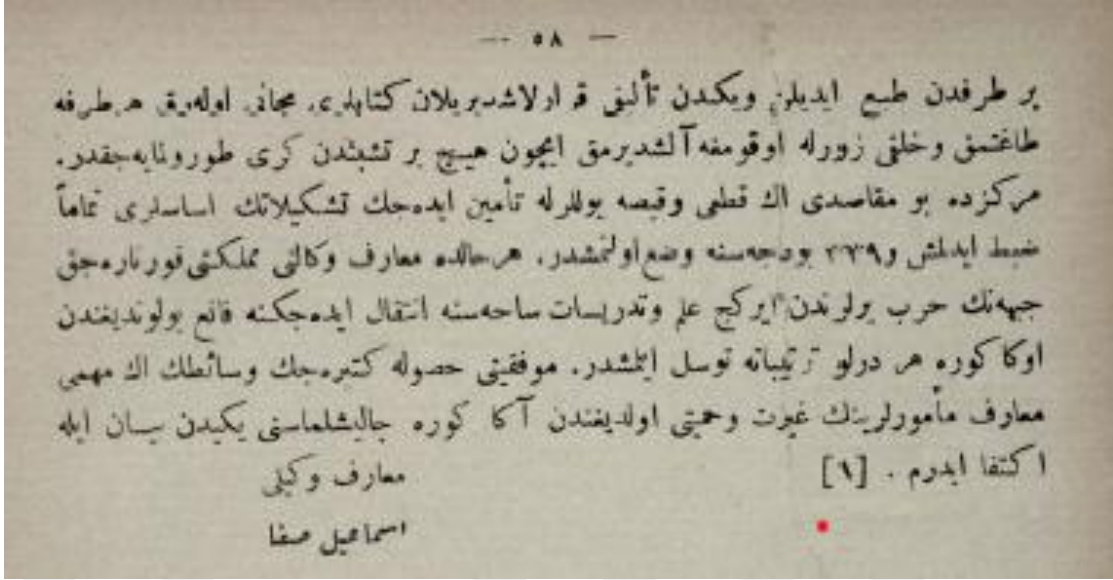 — ٥٨ —
بر طرفدن طبع ایدیلن ویكیدن تألیفی قرارلاشدیریلان كتابلری مجانی اولەرق هر طرفه
طاغتمق وخلقی زورله اوقومغه آلشدیرمق ایچون هیچ بر تشبثدن كری طورولمایه‌جقدر.
مركزده بو مقاصدی اك قطعی وقیصه یوللرله تأمین ایده‌جك تشكیلاتك اساسلری تماماً
ضبط ایدلمش و ٣٣٩ بودجه‌سنه وضع اولنمشدر. هر حالده معارف وكالتی مملكتی قورتاره‌جق
جبهه‌نك حرب یرلرندن ایركچ علم وتدریسات ساحه‌سنه انتقال ایده‌جكنه قانع بولوندیغندن
اوكا كوره هر درلو ترتیباته توسل ایتمشدر. موفقیتی حصوله كتیره‌جك وسائطك اك مهمی
معارف مأمورلرینك غیرت وحمیتی اولدیغندن آكا كوره چالیشلماسنی یكیدن بیان ایله
اكتفا ایدرم . [١]
معارف وكیلی
اسماعیل صفا